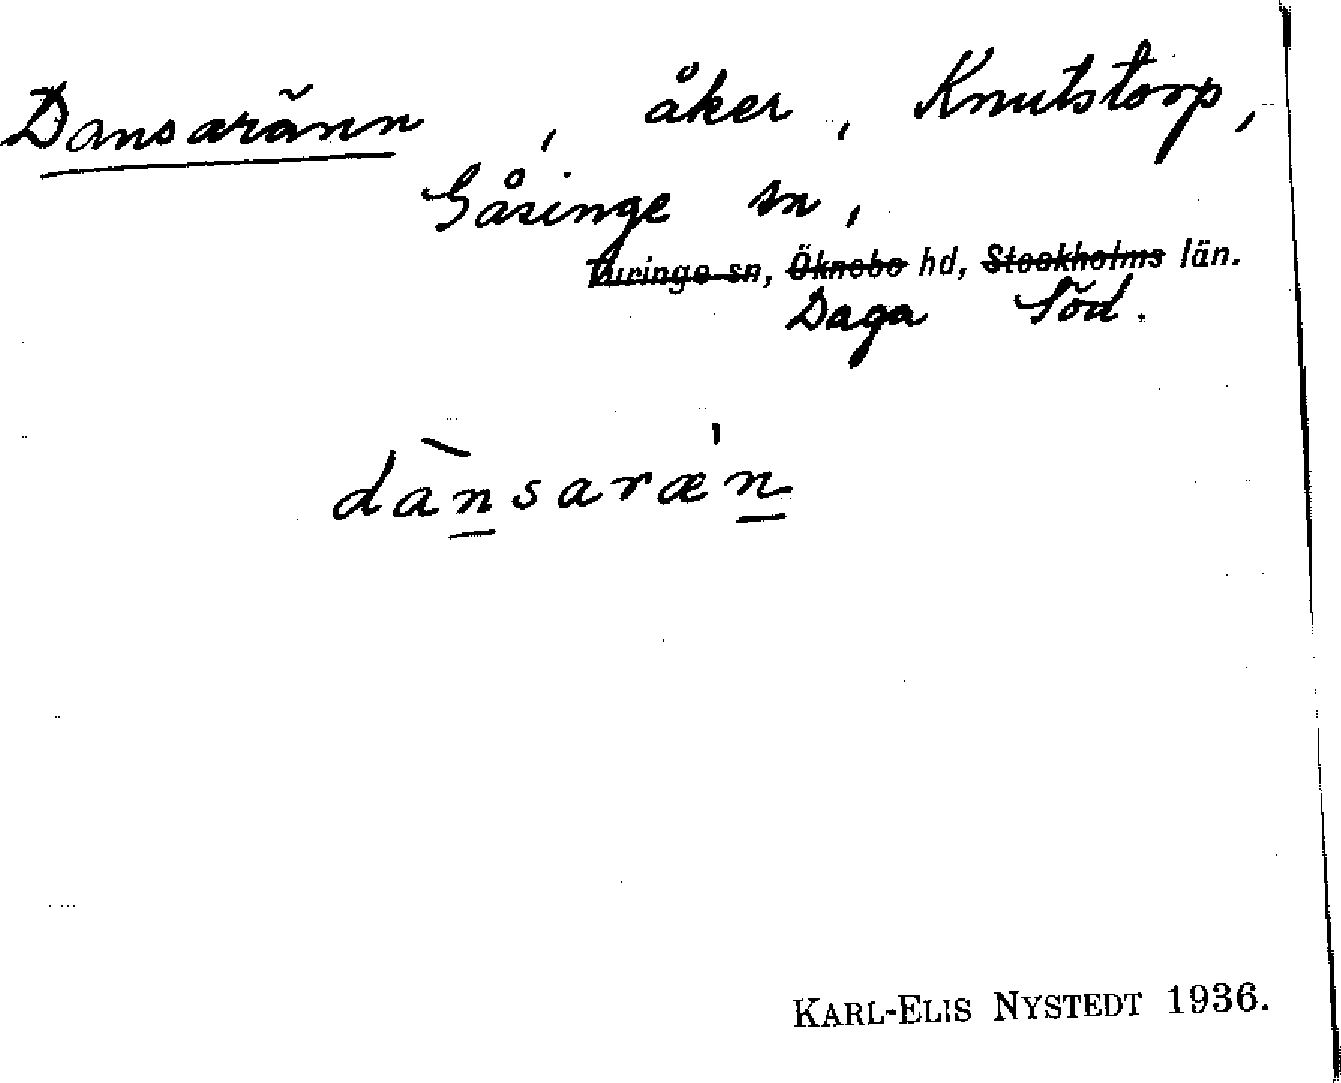 Dansaränn, åker, Knutstorp,
Gåsinge sn,
Turinge sn, Öknebo hd, Stockholms län.
Daga Söd.
dànsaræ'n
KARL-ELIS NYSTEDT 1936.